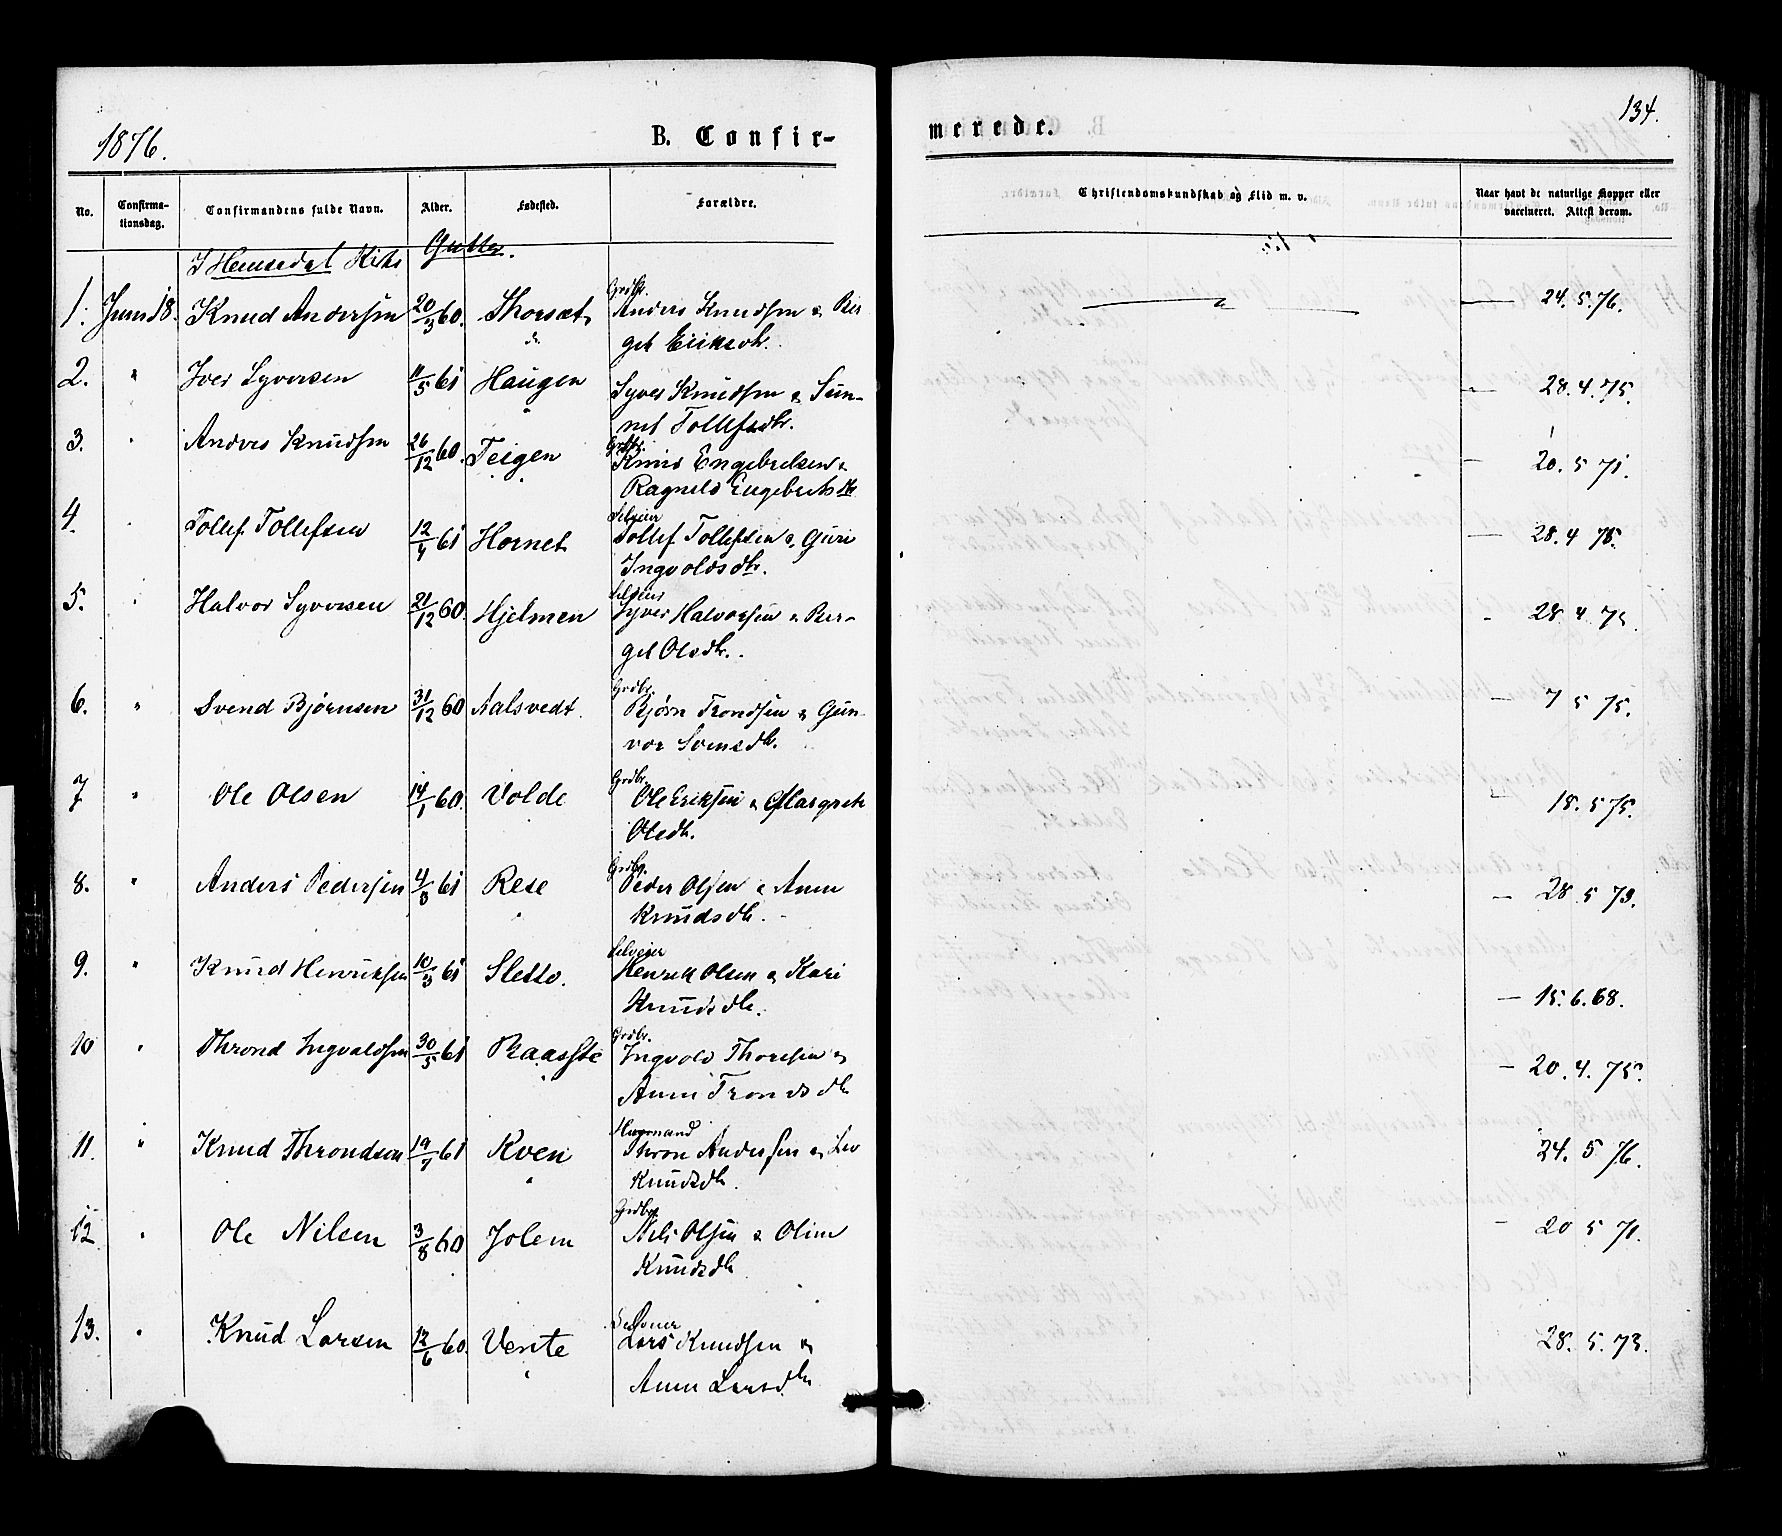 1876.
B. Confir-
merede.
134.
No.
Confirma-
tionsdag.
Confirmandens fulde Navn.
Alder.
Fødested.
Forældre.
Christendomskundskab og Flid m. v.
Naar havt de naturlige Kopper eller
vaccineret. Attest derom.
I Hemsedal Kirke Gutter.
1. Juni 18. Knud Andersen 20/3 60. Thorset Grdbr. Anders Knudsen & Bir
git Eriksdtr. 24. 5. 76.
2. " Iver Syversen 11/5 61 Haugen Syver Knudsen & Sün-
net Tollefsdtr. 28. 4. 75.
3. " Anders Knudsen 26/12 60. Teigen Grdbr. Knud Engebretsen &
Ragnild Engebretsdtr 20. 5 71.
4. " Tollef Tollefsen 12/4 61 Hornet Selveier Tollef Tollefsen & Guri
Ingvoldsdtr. 28. 4 75.
5. " Halvor Syversen 21/12 60. Hjelmen Selveier Syver Halvorsen & Bir-
git Olsdtr. 28 4 75.
6. " Svend Bjørnsen 31/12 60 Aalsvedt. Grdbr. Bjørn Trondsen & Gun-
vor Svensdtr. 7 5 75.
7 " Ole Olsen 14/1 60. Volde Grdbr. Ole Eriksen & Margreth
Olsdtr. 18. 5 75.
8. " Anders Pedersen 4/3 61 Rese Grdbr. Peder Olsen & Anne
Knudsdtr. 28 5 73.
9. " Knud Henriksen 10/3 61 Sletto. Selveier Henrik Olsen & Kari
Knudsdtr. 15. 6. 68.
10 " Thrond Ingvaldsen 30/5 61 Grdbr. Ingvold Thoresen &
Anne Trondsdtr 20. 4. 75.
11. " Knud Throndsen 19/7 61 Kven Thron Andersen &
Knudsdtr. 24. 5 76.
12 " Ole Nilsen 3/8 60 Jolem Grdbr. Nils Olsen & Oline
Knudsdtr 20 5 71.
13. " Knud Larsen 12/6 60. Vente Selveier Lars Knudsen &
Anne Larsdtr 28. 5. 73.